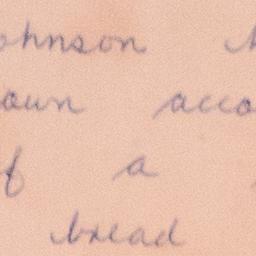 ohnson
own acco
f a
bread